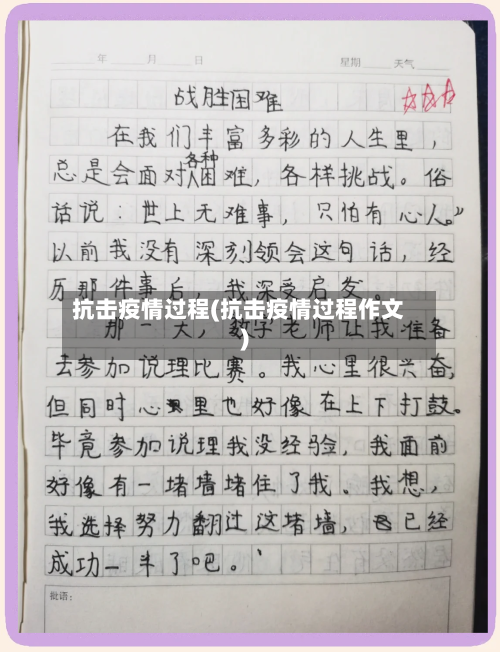 年 月 日 星期 天气
战胜困难
在我们丰富多彩的人生里，
总是会面对各种困难，各样挑战。俗
话说：世上无难事，只怕有心人。”
以前我没有深刻领会这句话，经
历那件事后，我深受启发
抗击疫情过程(抗击疫情过程作文
)
那一天，数学老师让我准备
去参加说理比赛。我心里很兴奋，
但同时心里也好像在上下打鼓。
毕竟参加说理我没经验，我面前
好像有一堵墙堵住了我。我想，
我选择努力翻过这堵墙，已经
成功一半了吧。
批语：